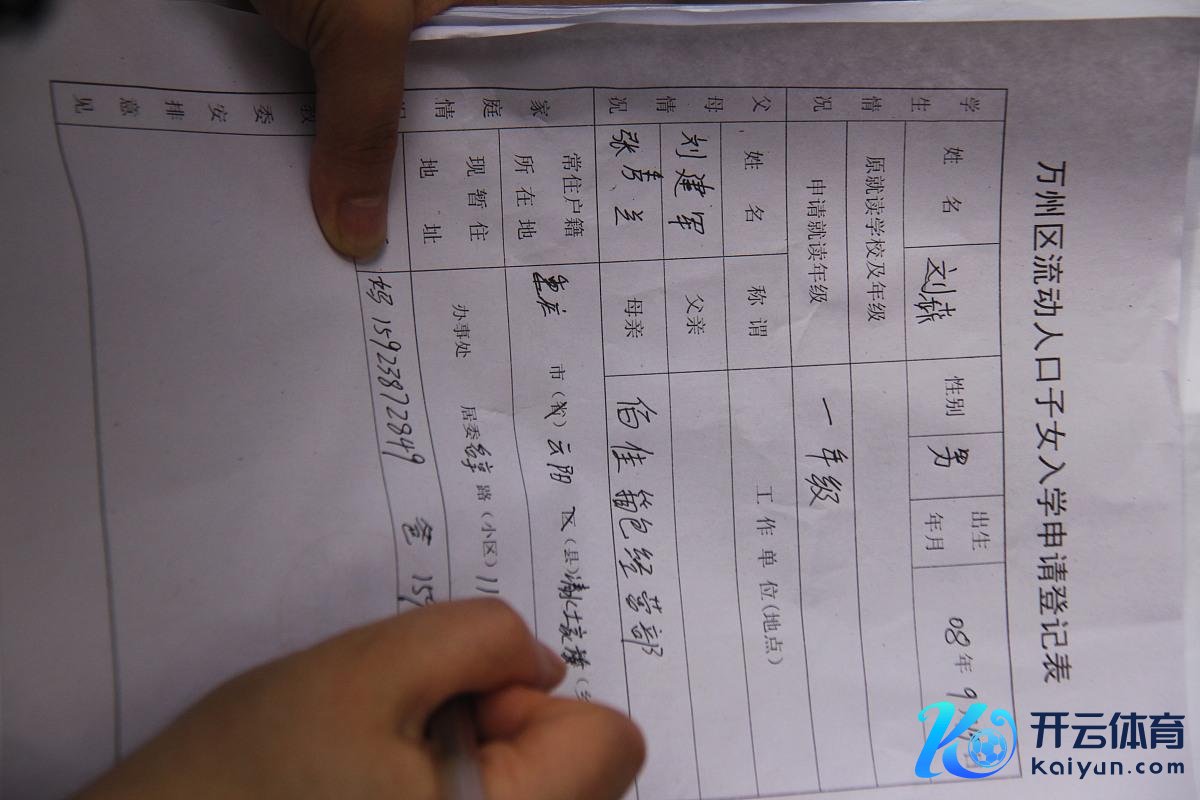 万州区流动人口子女入学申请登记表
学生情况
姓名 性别 男 出生年月 08年9
原就读学校及年级
申请就读年级 一年级
父母情况
姓名 称谓 工作单位(地点)
刘建军 父亲
张 兰 母亲 佰佳箱包经营部
家庭情
常住户籍所在地 重庆 市(省) 云阳 区(县)
现暂住地址 办事处 居委 路(小区) 11
妈 15923872849 爸 159
教委安排意见
开云体育
kaiyun.com